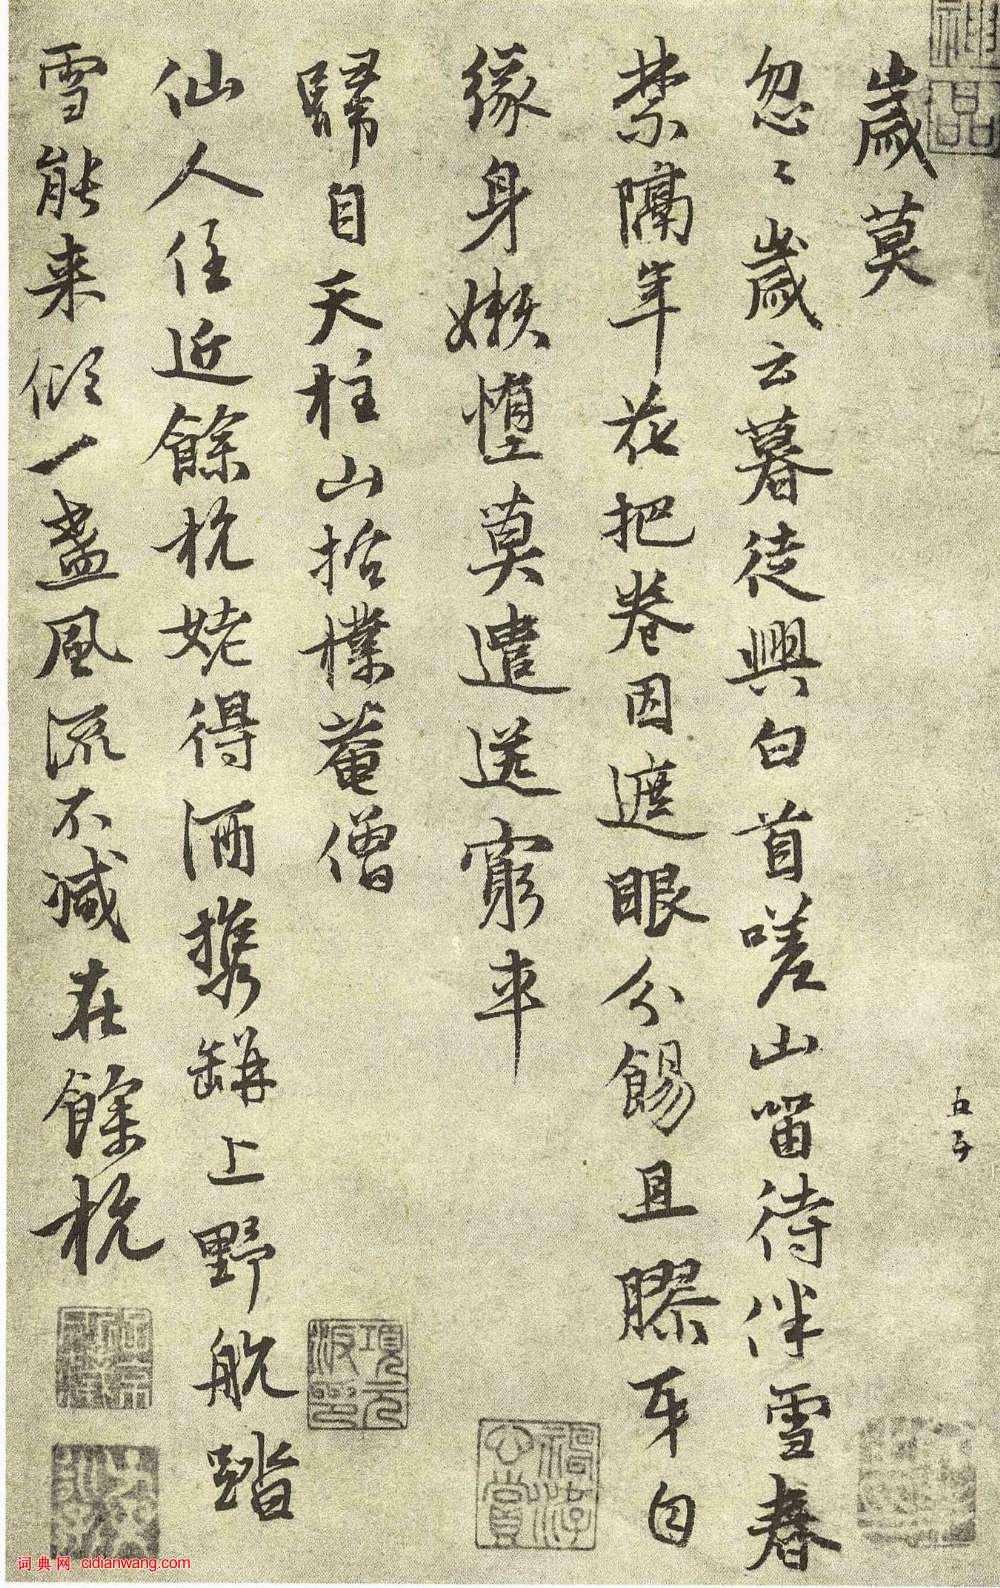 歲莫
忽〻歲云暮徒興白首嗟山留待伴雪春
禁隔年花把卷因遮眼分餳且膠牙自
緣身嬾惰莫遣送窮車
歸自天柱山括樸菴僧
仙人住近餘杭姥得酒携缾上野航踏
雪能来傾一盞風流不減在餘杭
五 子
神品
項元汴印
公賞
词典网 cidianwang.com